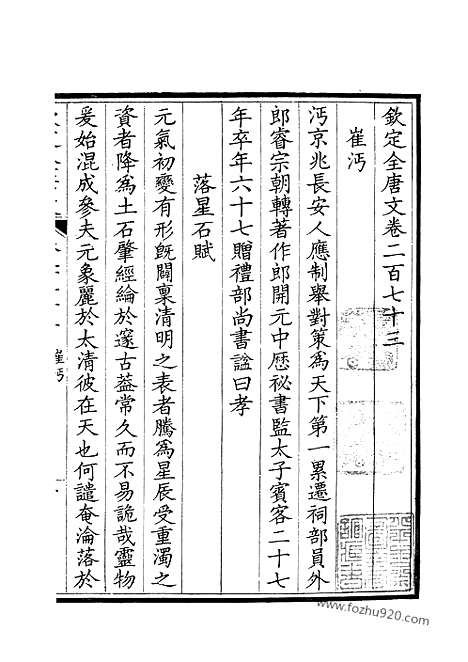 欽定全唐文卷二百七十三
崔沔
沔京兆長安人應制舉對策為天下第一累遷祠部員外
郎睿宗朝轉著作郎開元中歷祕書監太子賓客二十七
年卒年六十七贈禮部尚書諡曰孝
落星石賦
元氣初變有形既闢稟清明之表者騰為星辰受重濁之
資者降為土石肇經綸於邃古葢常久而不易詭哉靈物
爰始混成參夫元象麗於太清彼在天也何譴奄淪落於
崔沔
www.fozhu920.com